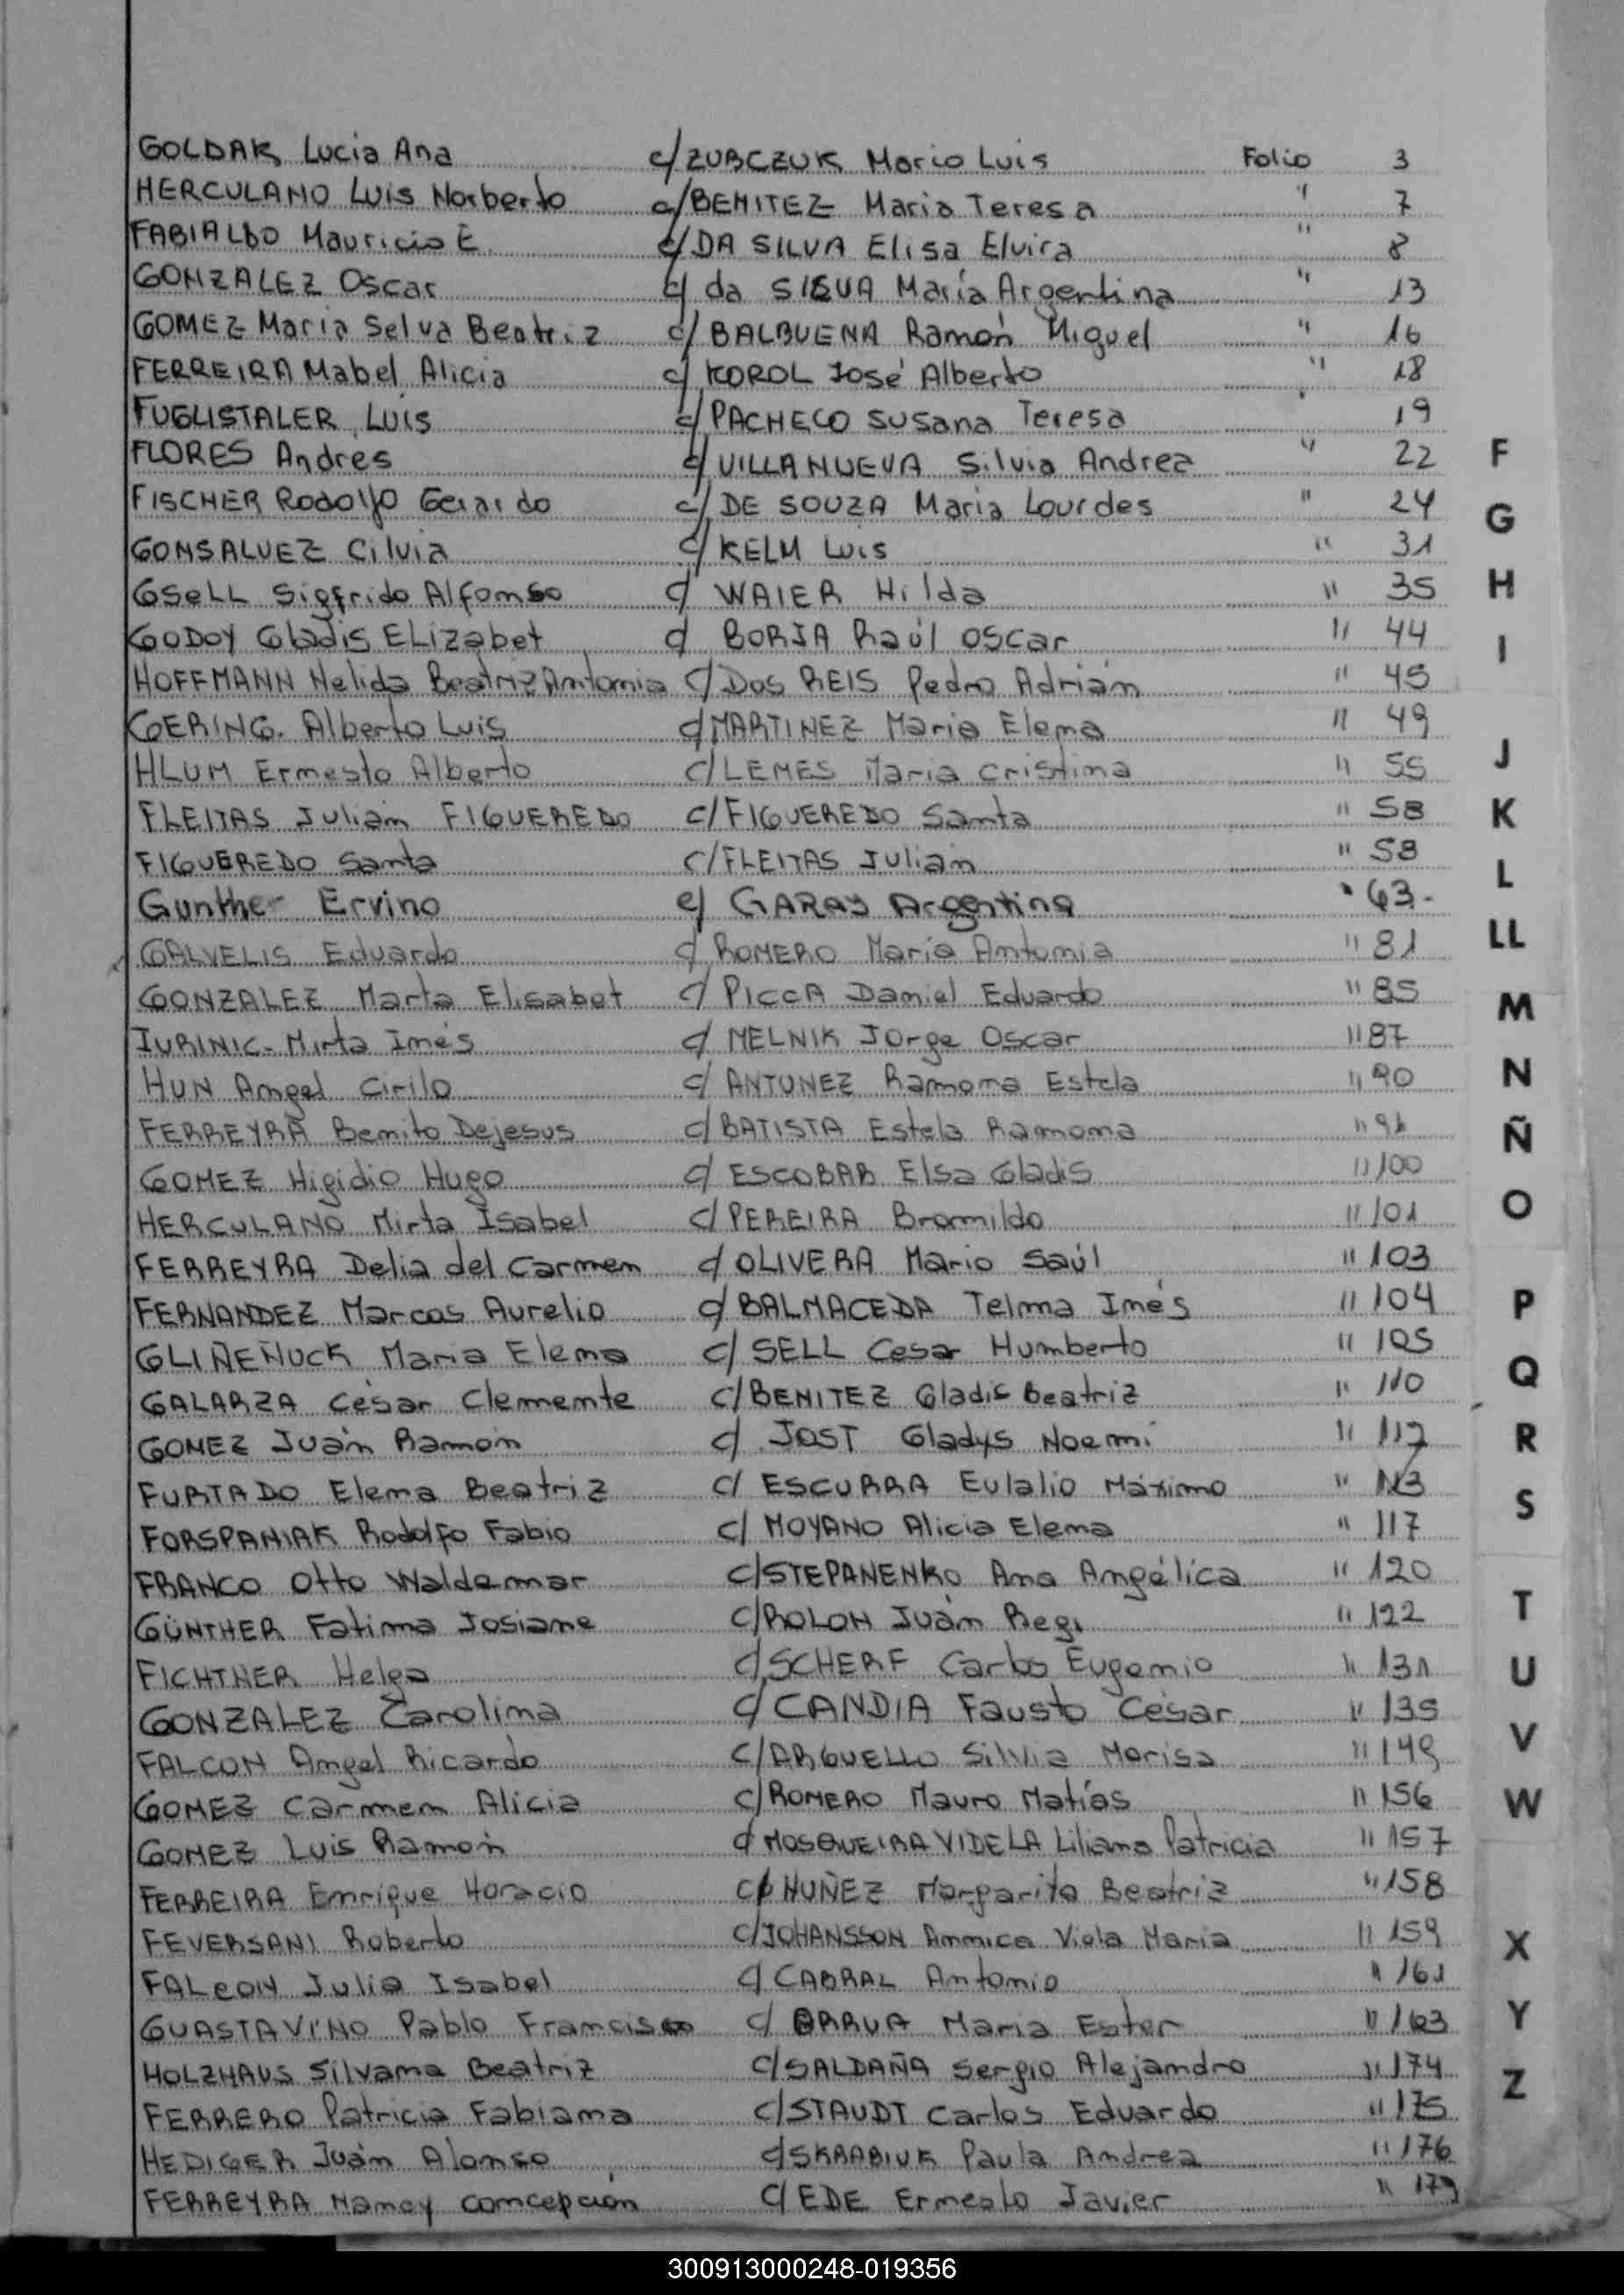 GOLDAK Lucia Ana c/ ZUBCZUK Mario Luis Folio 3
HERCULANO Luis Norberto c/ BENITEZ Maria Teresa " 7
FABIALDO Mauricio E. c/ DA SILVA Elisa Elvira " 8
GONZALEZ Oscar c/ da SILVA María Argentina " 13
GOMEZ Maria Selva Beatriz c/ BALBUENA Ramón Miguel " 16
FERREIRA Mabel Alicia c/ KOROL José Alberto " 18
FUGLISTALER, Luis c/ PACHECO Susana Teresa " 19
FLORES Andres c/ VILLANUEVA Silvia Andrea " 22
FISCHER Rodolfo Gerardo c/ DE SOUZA Maria Lourdes " 24
GONSALVEZ Cilvia c/ KELM Luis " 31
GSELL Sigfrido Alfonso c/ WAIER Hilda " 35
GODOY Gladis ELizabet c/ BORJA Raúl Oscar " 44
HOFFMANN Nelida Beatriz Antonia c/ Dos REIS Pedro Adrián " 45
GERING. Alberto Luis c/ MARTINEZ Maria Elena " 49
HLUM Ernesto Alberto c/ LEMES Maria Cristina " 55
FLEITAS Julián FIGUEREDO c/ FIGUEREDO Santa " 58
FIGUEREDO Santa c/ FLEITAS Julián " 58
Gunther Ervino c/ GARAY Argentina " 63.
GALVELIS Eduardo c/ ROMERO María Antonia " 81
GONZALEZ Marta Elisabet c/ PICCA Daniel Eduardo " 85
IURINIC. Mirta Inés c/ MELNIK Jorge Oscar " 87
HUN Angel Cirilo c/ ANTUNEZ Ramona Estela " 90
FERREYRA Benito Dejesus c/ BATISTA Estela Ramona "
GOMEZ Higidio Hugo c/ ESCOBAR Elsa Gladis " 100
HERCULANO Mirta Isabel c/ PEREIRA Bronildo " 101
FERREYRA Delia del Carmen c/ OLIVERA Mario Saúl " 103
FERNANDEZ Marcos Aurelio c/ BALMACEDA Telma Inés " 104
GLIÑEÑUCK Maria Elena c/ SELL Cesar Humberto " 105
GALARZA César Clemente c/ BENITEZ Gladis Beatriz " 110
GOMEZ Juán Ramón c/ JOST Gladys Noemi "
FURTADO Elena Beatriz c/ ESCURRA Eulalio Máximo " 113
FORSPANIAK Rodolfo Fabio c/ MOYANO Alicia Elena " 117
FRANCO Otto Waldemar c/ STEPANENKO Ana Angélica " 120
GÜNTHER Fatima Josiane c/ ROLON Juán Regi " 122
FICHTNER Helga c/ SCHERF Carlos Eugenio " 131
GONZALEZ Carolina c/ CANDIA Fausto César " 135
FALCON Angel Ricardo c/ ARGUELLO Silvia Marisa " 149
GOMEZ Carmen Alicia c/ ROMERO Mauro Matías " 156
GOMEZ Luis Ramón c/ MOSQUEIRA VIDELA Liliana Patricia " 157
FERREIRA Enrique Horacio c/ NUÑEZ Margarita Beatriz " 158
FEVERSANI Roberto c/ JOHANSSON Annica Viola Maria " 159
FALCON Julia Isabel c/ CABRAL Antonio " 161
GUASTAVINO Pablo Francisco c/ ORRUA Maria Ester " 163
HOLZHAUS Silvana Beatriz c/ SALDAÑA Sergio Alejandro " 174
FERRERO Patricia Fabiana c/ STAUDT Carlos Eduardo " 175
HEDIGER Juán Alonso c/ SKRABIUK Paula Andrea " 176
FERREYRA Nancy Concepción c/ EDE Ernesto Javier " 179
F
G
H
I
J
K
L
LL
M
N
Ñ
O
P
Q
R
S
T
U
V
W
X
Y
Z
300913000248-019356